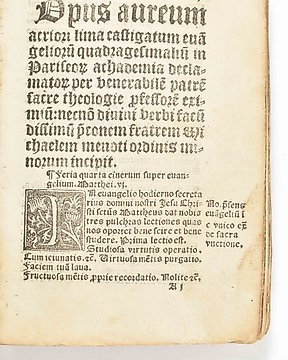 Opus aureum
acriori lima castigatum euã
geliorũ quadragesimaliũ in
Pariseoꝝ achademia decla-
matoꝝ per venerabilẽ patrẽ
sacre theologie ꝓfessorẽ exi-
miũ: necnõ diuini verbi faci
dissimũ p̃conem fratrem Mi
chaelem menoti ordinis mi-
norum incipit.
¶ Feria quarta cinerum super euan-
gelium. Matthei. vi.
IN euangelio hodierno secreta
rius domini nostri Jesu Chri-
sti sctũs Mattheus dat nobis
tres pulchras lectiones quas
nos oportet bene scire et bene
studere. Prima lectio est.
Studiosa virtutis operatio.
Cum ieiunatis. ⁊c̃. Uirtuosa mẽtis purgatio.
Faciem tuã laua.
Fructuosa mẽtis ꝓprie recordatio. Nolite ⁊c̃.
No. p̃sens
euãgeliũ i
c vnico eẜ
de sacra
vnctione,
A i